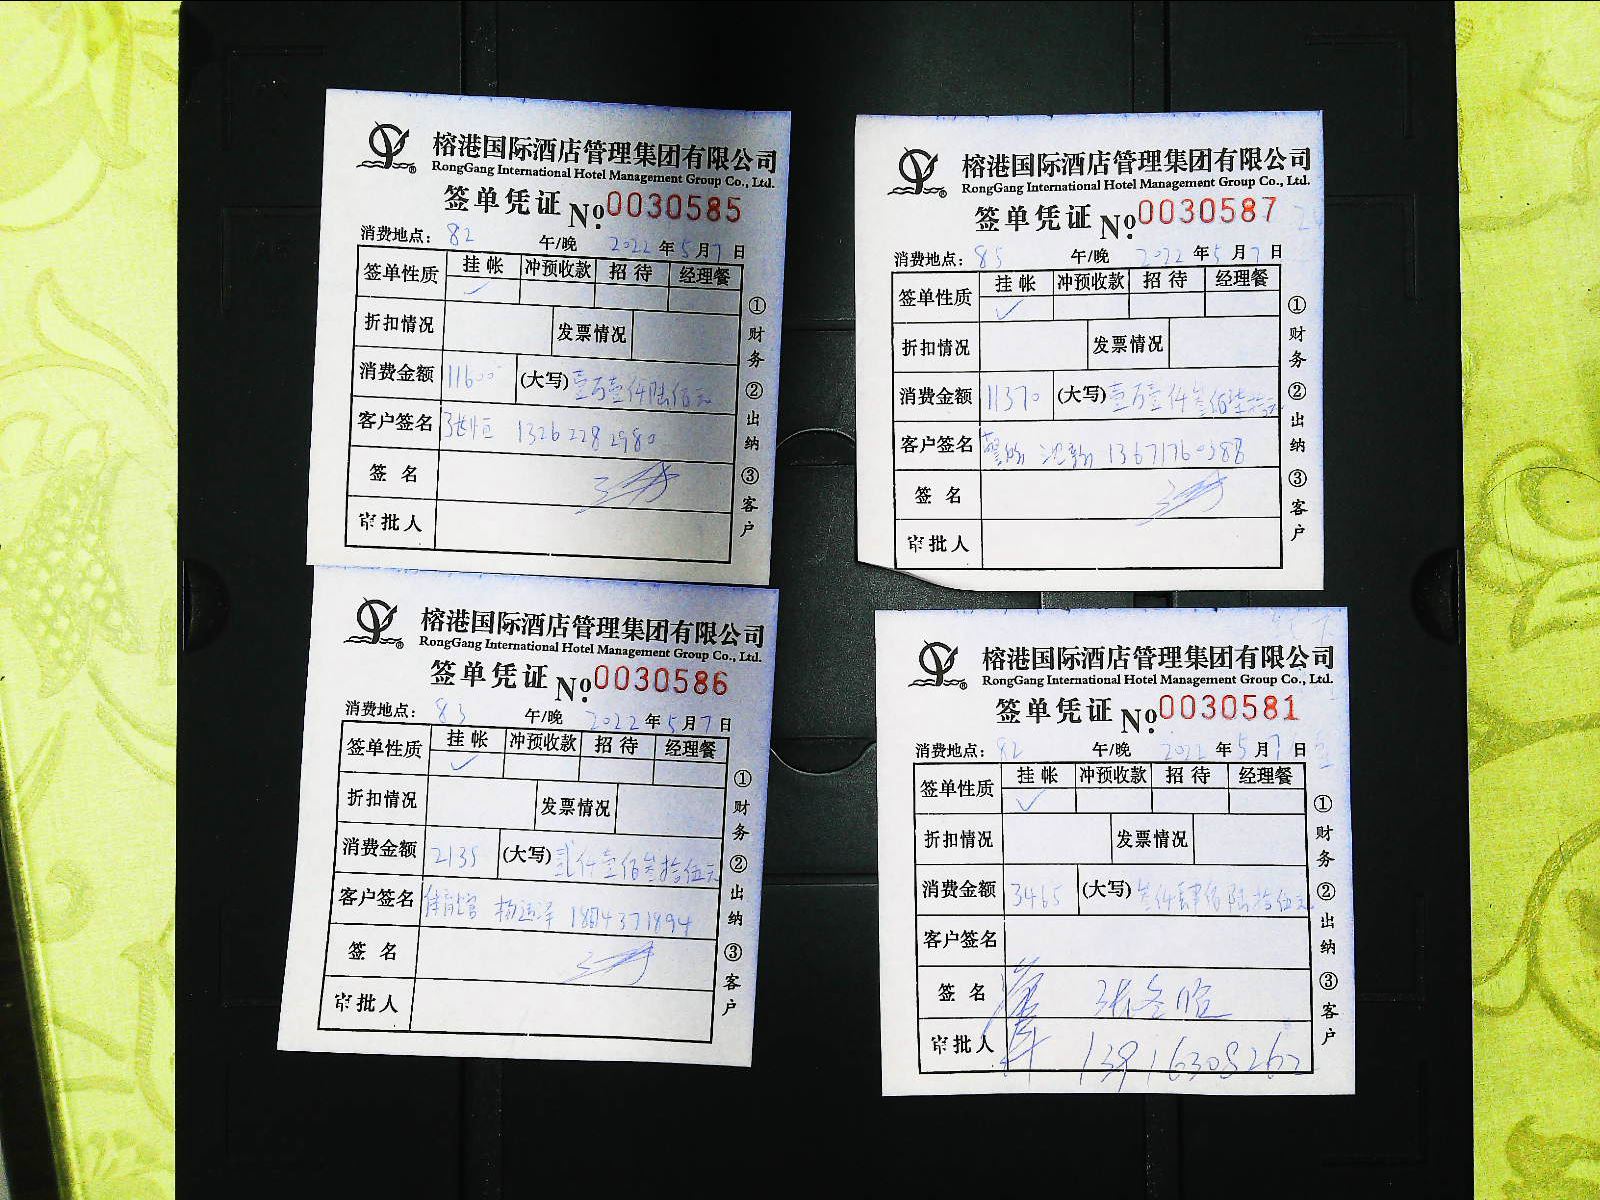 榕港国际酒店管理集团有限公司
RongGang International Hotel Management Group Co., Ltd.
签单凭证 №0030585
消费地点：82 午/晚 2022年5月7日
签单性质 挂帐 冲预收款 招待 经理餐
✓
折扣情况 发票情况
消费金额 11600 (大写)壹万壹仟陆佰元
客户签名 13262282980
签名
审批人
①财务②出纳③客户
榕港国际酒店管理集团有限公司
RongGang International Hotel Management Group Co., Ltd.
签单凭证 №0030586
消费地点：83 午/晚 2022年5月7日
签单性质 挂帐 冲预收款 招待 经理餐
✓
折扣情况 发票情况
消费金额 2135 (大写)贰仟壹佰叁拾伍元
客户签名
签名
审批人
①财务②出纳③客户
榕港国际酒店管理集团有限公司
RongGang International Hotel Management Group Co., Ltd.
签单凭证 №0030587
消费地点：85 午/晚 2022年5月7日
签单性质 挂帐 冲预收款 招待 经理餐
✓
折扣情况 发票情况
消费金额 11370 (大写)壹万壹仟叁佰柒拾元
客户签名
签名
审批人
①财务②出纳③客户
榕港国际酒店管理集团有限公司
RongGang International Hotel Management Group Co., Ltd.
签单凭证 №0030581
消费地点：82 午/晚 2022年5月7日
签单性质 挂帐 冲预收款 招待 经理餐
✓
折扣情况 发票情况
消费金额 3465 (大写)叁仟肆佰陆拾伍元
客户签名
签名
审批人 13916308262
①财务②出纳③客户